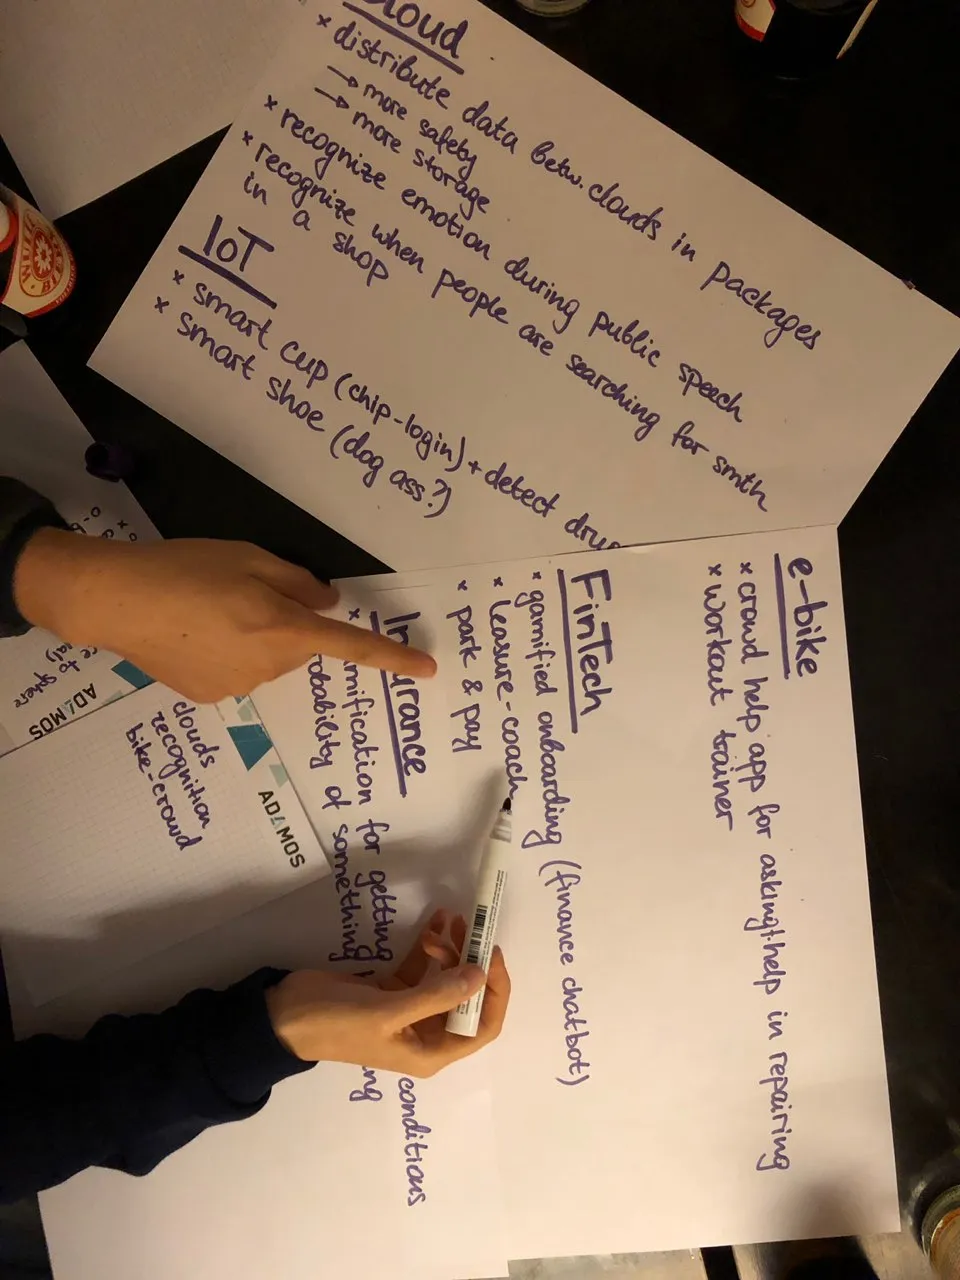 Cloud
× distribute data betw. clouds in packages
→ more safety
→ more storage
× recognize emotion during public speech
× recognize when people are searching for smth
in a shop
IoT
× smart cup (chip-login) + detect
× smart shoe (dog ass.?)
e-bike
× crowd help app for asking+help in repairing
× workout trainer
FinTech
× gamified onboarding (finance chatbot)
× leasure-coach
× park & pay
Insurance
× gamification for getting conditions
probability of something
ADAMOS
to sphere
ADAMOS
clouds
recognition
bike-crowd